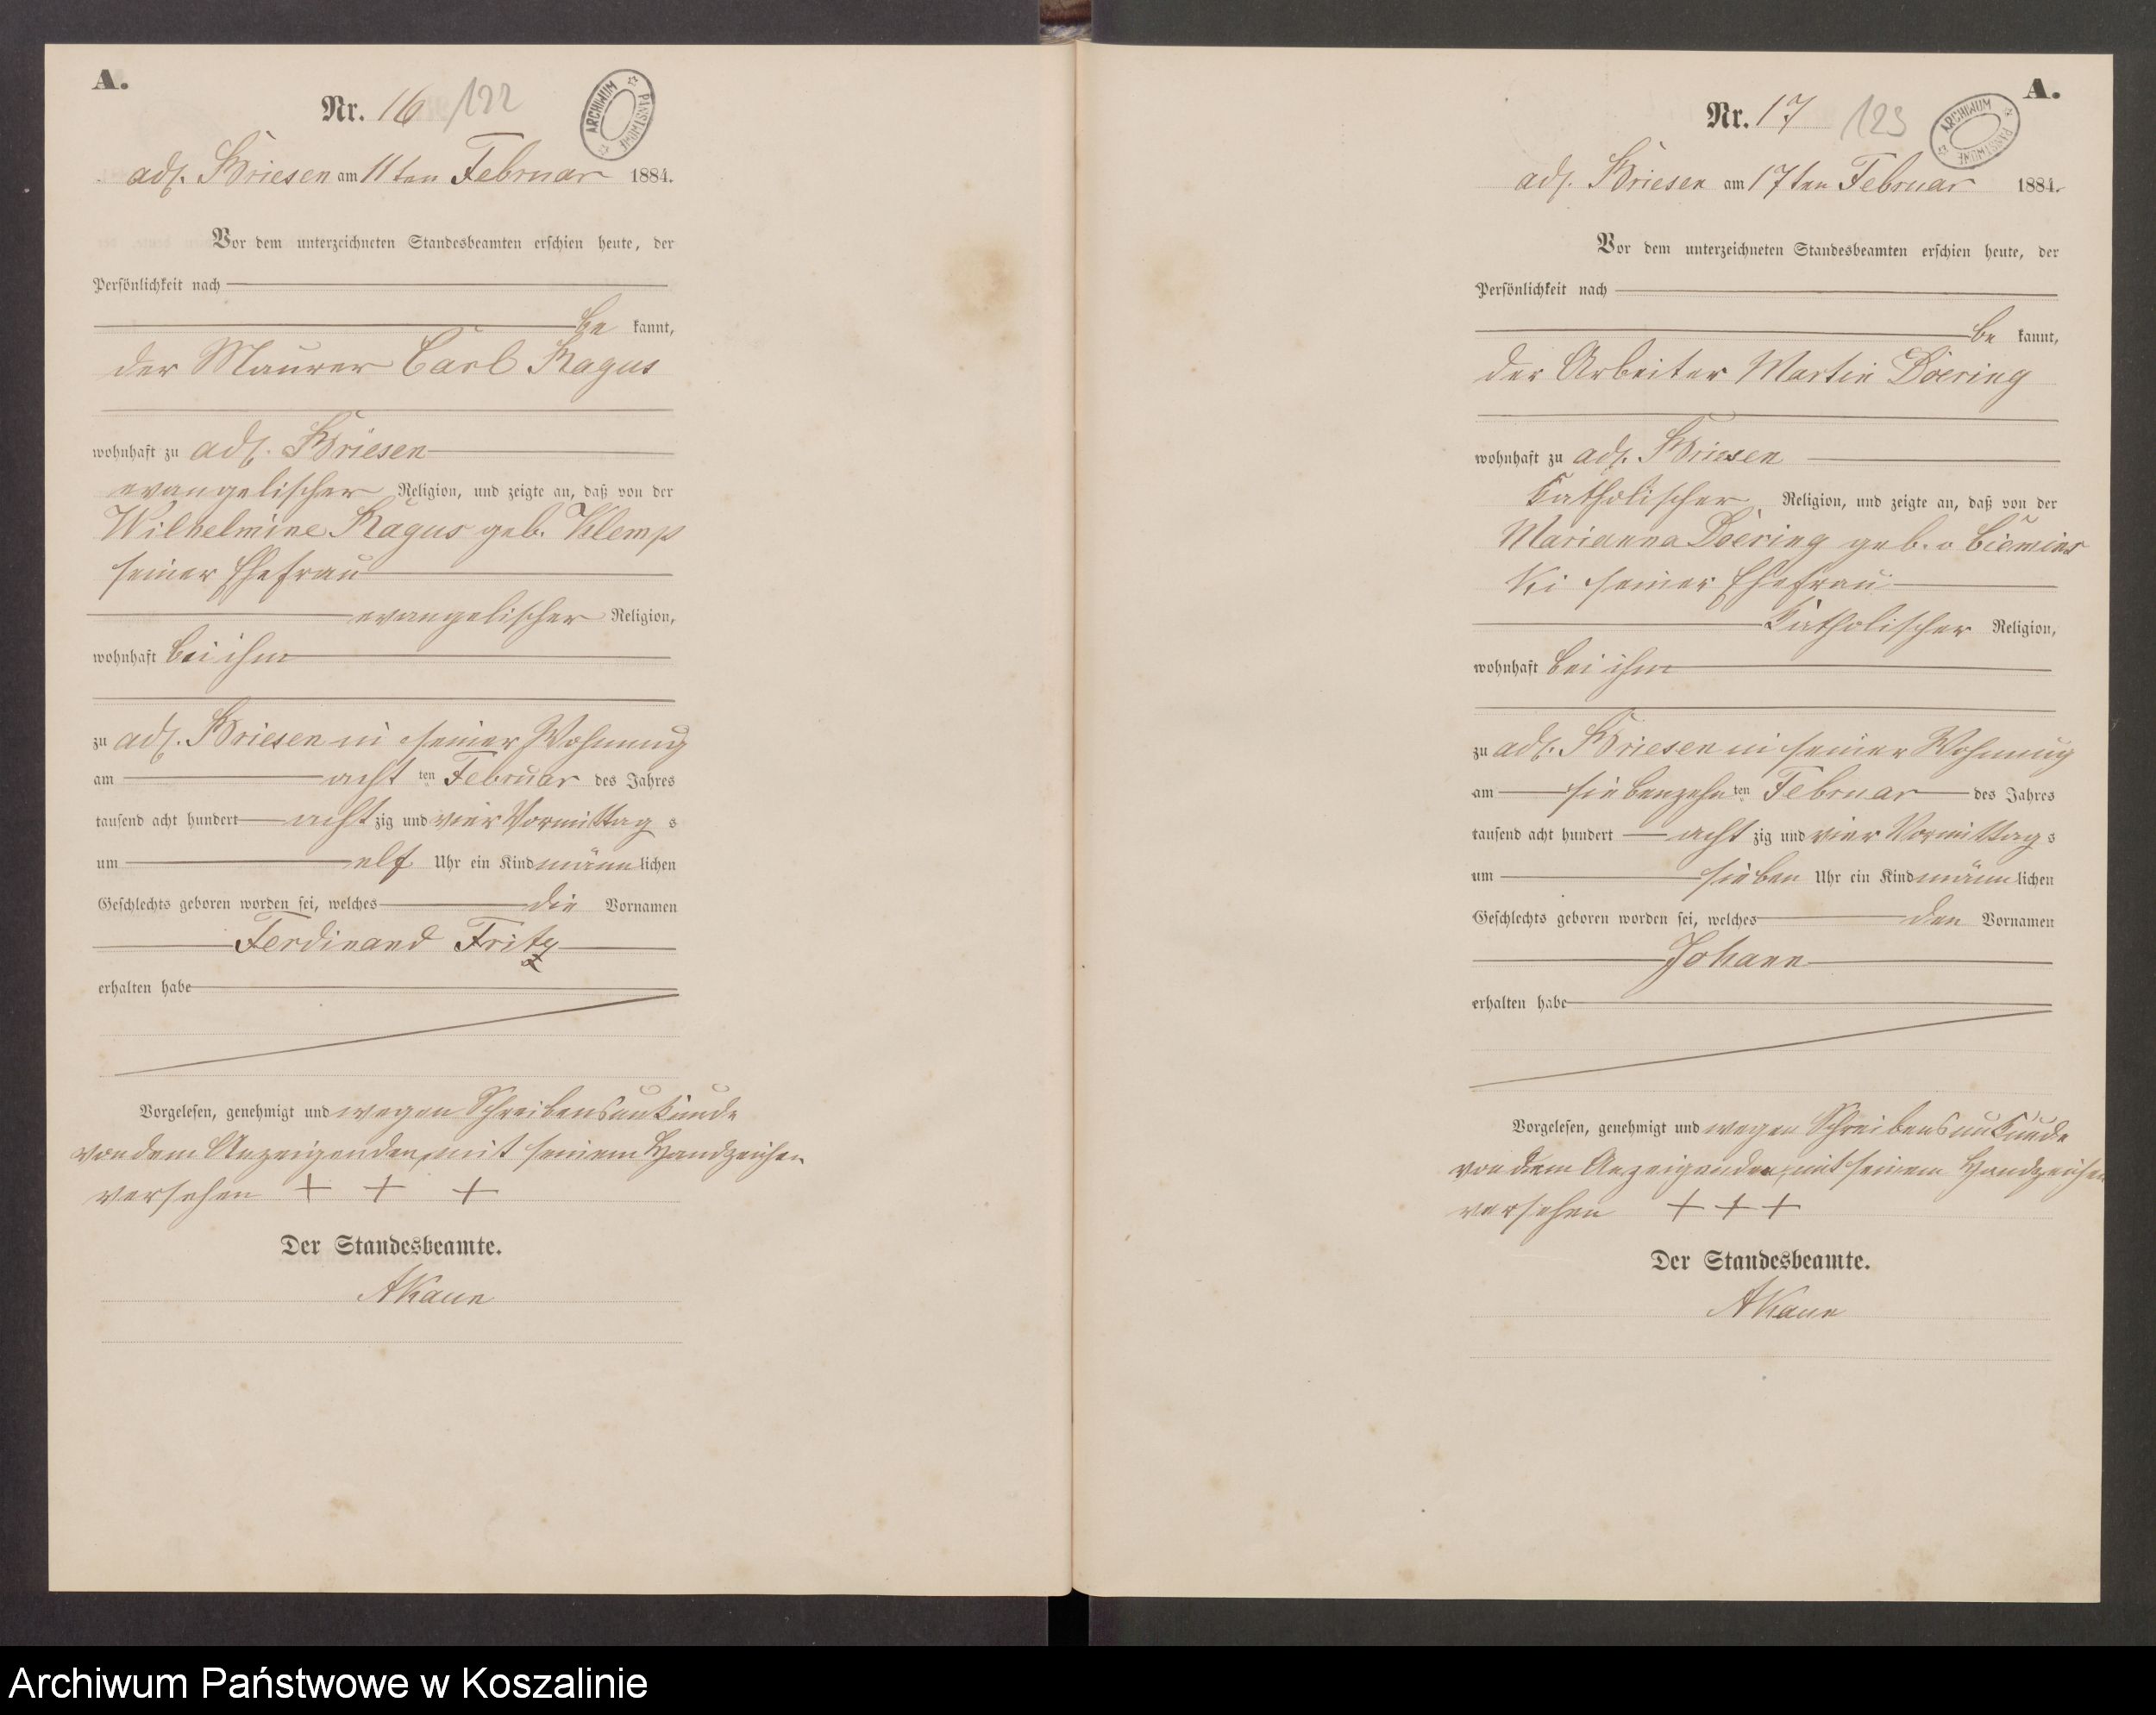 A.
Nr. 16 122
ARCHIWUM PAŃSTWOWE
adl. Briesen am 11ten Februar 1884.
Vor dem unterzeichneten Standesbeamten erschien heute, der
Persönlichkeit nach
be kannt,
der Maurer Carl Ragus
wohnhaft zu adl. Briesen
evangelischer Religion, und zeigte an, daß von der
Wilhelmine Ragus geb. Klemp
seiner Ehefrau
evangelischer Religion,
wohnhaft bei ihm
zu adl. Briesen in seiner Wohnung
am acht ten Februar des Jahres
tausend acht hundert acht zig und vier Vormittag s
um elf Uhr ein Kind männ lichen
Geschlechts geboren worden sei, welches die Vornamen
Ferdinand Fritz
erhalten habe
Vorgelesen, genehmigt und wegen Schreibensunkunde
von dem Anzeigenden mit seinem Handzeichen
versehen + + +
Der Standesbeamte.
AKaun
A.
Nr. 17 123
ARCHIWUM PAŃSTWOWE
adl. Briesen am 17ten Februar 1884.
Vor dem unterzeichneten Standesbeamten erschien heute, der
Persönlichkeit nach
be kannt,
der Arbeiter Martin Doering
wohnhaft zu adl. Briesen
katholischer Religion, und zeigte an, daß von der
Marianna Doering geb.
ki seiner Ehefrau
katholischer Religion,
wohnhaft bei ihm
zu adl. Briesen in seiner Wohnung
am siebenzehn ten Februar des Jahres
tausend acht hundert acht zig und vier Vormittag s
um sieben Uhr ein Kind männ lichen
Geschlechts geboren worden sei, welches den Vornamen
Johann
erhalten habe
Vorgelesen, genehmigt und wegen Schreibensunkunde
von dem Anzeigenden mit seinem Handzeichen
versehen + + +
Der Standesbeamte.
AKaun
Archiwum Państwowe w Koszalinie